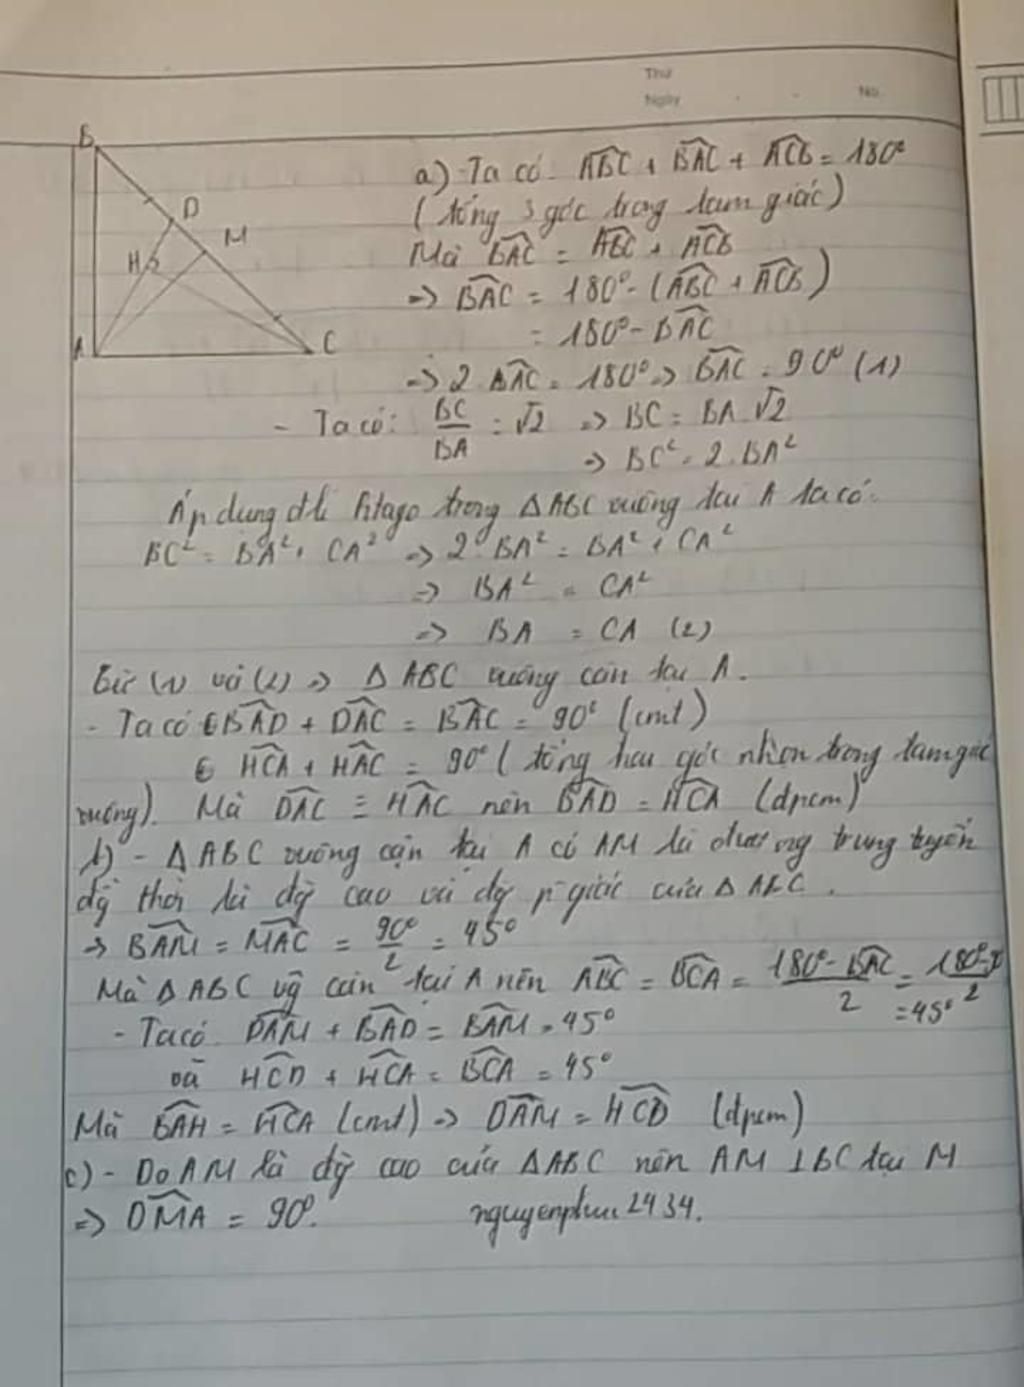 Thứ
Ngày No.
B
D
M
H
A C
a) - Ta có \widehat{ABC} + \widehat{BAC} + \widehat{ACB} = 180°
(tổng 3 góc trong tam giác)
Mà \widehat{BAC} = \widehat{ABC} + \widehat{ACB}
=> \widehat{BAC} = 180° - (\widehat{ABC} + \widehat{ACB})
= 180° - \widehat{BAC}
=> 2 \widehat{BAC} = 180° => \widehat{BAC} = 90° (1)
- Ta có: BC/BA = √2 => BC = BA.√2
=> BC² = 2.BA²
Áp dụng đlí Pitago trong Δ ABC vuông tại A ta có:
BC² = BA² + CA² => 2.BA² = BA² + CA²
=> BA² = CA²
=> BA = CA (2)
Từ (1) và (2) => Δ ABC vuông cân tại A.
- Ta có \widehat{BAD} + \widehat{DAC} = \widehat{BAC} = 90° (cmt)
\widehat{HCA} + \widehat{HAC} = 90° (tổng hai góc nhọn trong tam giác
vuông). Mà \widehat{DAC} ≡ \widehat{HAC} nên \widehat{BAD} = \widehat{HCA} (đpcm)
b) - Δ ABC vuông cân tại A có AM là đường trung tuyến
đg̀ thời là đg̀ cao và đg̀ p-giác của Δ ABC.
=> \widehat{BAM} = \widehat{MAC} = 90°/2 = 45°
Mà Δ ABC vg̃ cân tại A nên \widehat{ABC} = \widehat{BCA} = (180° - \widehat{BAC})/2 = 180°-9/2
= 45°
- Ta có \widehat{DAM} + \widehat{BAD} = \widehat{BAM} = 45°
và \widehat{HCD} + \widehat{HCA} = \widehat{BCA} = 45°
Mà \widehat{BAH} = \widehat{HCA} (cmt) => \widehat{DAM} = \widehat{HCD} (đpcm)
c) - Do AM là đg̀ cao của Δ ABC nên AM ⊥ BC tại M
=> \widehat{DMA} = 90°. nguyenphuc2434.